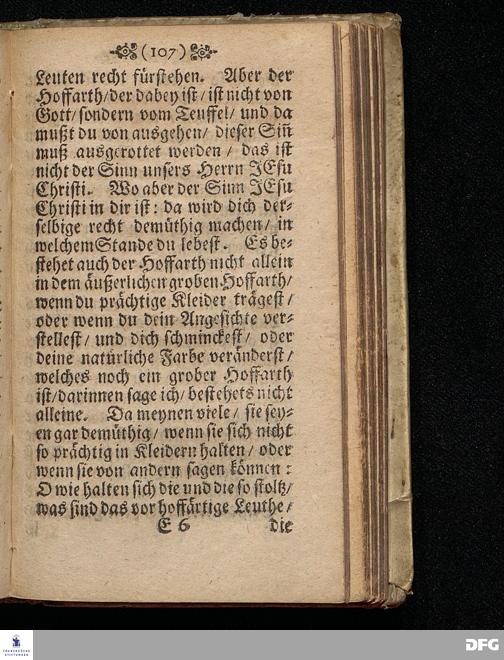 (107)
Leuten recht fürstehen. Aber der
Hoffarth/ der dabey ist/ ist nicht von
Gott/ sondern vom Teuffel/ und da
mußt du von ausgehen/ dieser Siñ
muß ausgerottet werden/ das ist
nicht der Sinn unsers Herrn JEsu
Christi. Wo aber der Sinn JEsu
Christi in dir ist: da wird dich der-
selbige recht demüthig machen/ in
welchem Stande du lebest. Es be-
stehet auch der Hoffarth nicht allein
in dem äußerlichen groben Hoffarth/
wenn du prächtige Kleider trägest/
oder wenn du dein Angesichte ver-
stellest/ und dich schminckest/ oder
deine natürliche Farbe veränderst/
welches noch ein grober Hoffarth
ist/ darinnen sage ich/ bestehets nicht
alleine. Da meynen viele/ sie sey-
en gar demüthig/ wenn sie sich nicht
so prächtig in Kleidern halten/ oder
wenn sie von andern sagen können:
O wie halten sich die und die so stoltz/
was sind das vor hoffärtige Leuthe/
E 6 die
FRANCKESCHE STIFTUNGEN
DFG